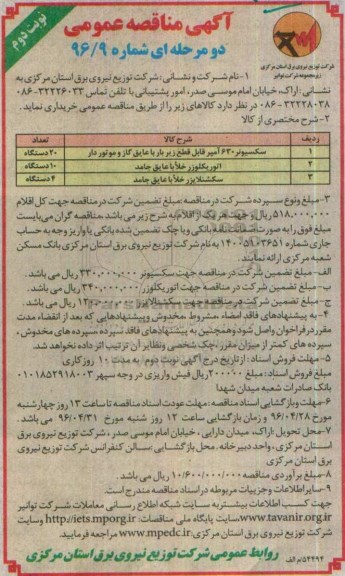 نوبت دوم
آگهی مناقصه عمومی
دو مرحله ای شماره ۹۶/۹
شرکت توزیع نیروی برق استان مرکزی
زیرمجموعه شرکت توانیر
۱-نام شرکت و نشانی: شرکت توزیع نیروی برق استان مرکزی به
نشانی: اراک، خیابان امام موسی صدر، امور پشتیبانی با تلفن تماس ۳۲۲۲۶۰۳۳-۰۸۶
۳۲۲۲۸۰۳۸-۰۸۶ در نظر دارد کالاهای زیر را از طریق مناقصه عمومی خریداری نماید.
۲-شرح مختصری از کالا
ردیف شرح کالا تعداد
۱ سکسیونر ۶۳۰ آمپر قابل قطع زیر بار با عایق گاز و موتور دار ۲۰ دستگاه
۲ اتوریکلوزر خلأ با عایق جامد ۱۰ دستگاه
۳ سکشنلایزر خلأ با عایق جامد ۴ دستگاه
۳-مبلغ و نوع سپرده شرکت در مناقصه: مبلغ تضمین شرکت در مناقصه جهت کل اقلام
۵۱۸,۰۰۰,۰۰۰ ریال و جهت هر یک از اقلام به شرح زیر می باشد. مناقصه گران می بایست
مبلغ فوق را به صورت ضمانت نامه بانکی و یا چک تضمین شده بانکی یا واریز وجه به حساب
جاری شماره ۱۴۰۰۵۱۰۳۶۵۱ به نام شرکت توزیع نیروی برق استان مرکزی بانک مسکن
شعبه مرکزی ارائه نمایند.
الف-مبلغ تضمین شرکت در مناقصه جهت سکسیونر ۳۳۰,۰۰۰,۰۰۰ ریال می باشد.
ب-مبلغ تضمین شرکت در مناقصه جهت اتوریکلوزر ۳۴۰,۰۰۰,۰۰۰ ریال می باشد.
ج-مبلغ تضمین شرکت در مناقصه جهت سکشنلایزر ریال می باشد.
۴-به پیشنهادهای فاقد امضاء، مشروط، مخدوش و پیشنهادهایی که بعد از انقضاء مدت
مقرر در فراخوان واصل شود و همچنین به پیشنهادهای فاقد سپرده، سپرده های مخدوش،
سپرده های کمتر از میزان مقرر، چک شخصی و نظایر آن ترتیب اثر داده نخواهد شد.
۵-مهلت فروش اسناد: از تاریخ درج آگهی نوبت دوم به مدت ۱۰ روز کاری
مبلغ فروش اسناد: مبلغ ۲۰۰۰۰۰ ریال فیش واریزی در وجه سپهر ۰۱۰۱۸۵۲۹۱۸۰۰۳
بانک صادرات شعبه میدان شهدا
۶-مهلت و بازگشایی اسناد مناقصه: مهلت عودت اسناد مناقصه تا ساعت ۱۳ روز چهارشنبه
مورخ ۹۶/۰۴/۲۸ و زمان بازگشایی ساعت ۱۲ روز شنبه مورخ ۹۶/۰۴/۳۱ می باشد.
۷-محل تحویل: اراک، میدان دارایی، خیابان امام موسی صدر، شرکت توزیع نیروی برق
استان مرکزی، واحد دبیرخانه. محل بازگشایی سالن کنفرانس شرکت توزیع نیروی
برق استان مرکزی
۸-مبلغ برآوردی مناقصه ۱۰/۶۰۰/۰۰۰/۰۰۰ ریال می باشد.
۹-سایر اطلاعات و جزییات مربوطه در اسناد مناقصه مندرج است.
جهت کسب اطلاعات بیشتر به سایت شبکه اطلاع رسانی معاملات شرکت توانیر
www.tavanir.org.ir، سایت پایگاه ملی مناقصات: http://iets.mporg.ir و سایت
شرکت توزیع نیروی برق استان مرکزی: www.mpedc.ir مراجعه فرمایید.
۵۴۴۹۴/م الف
روابط عمومی شرکت توزیع نیروی برق استان مرکزی